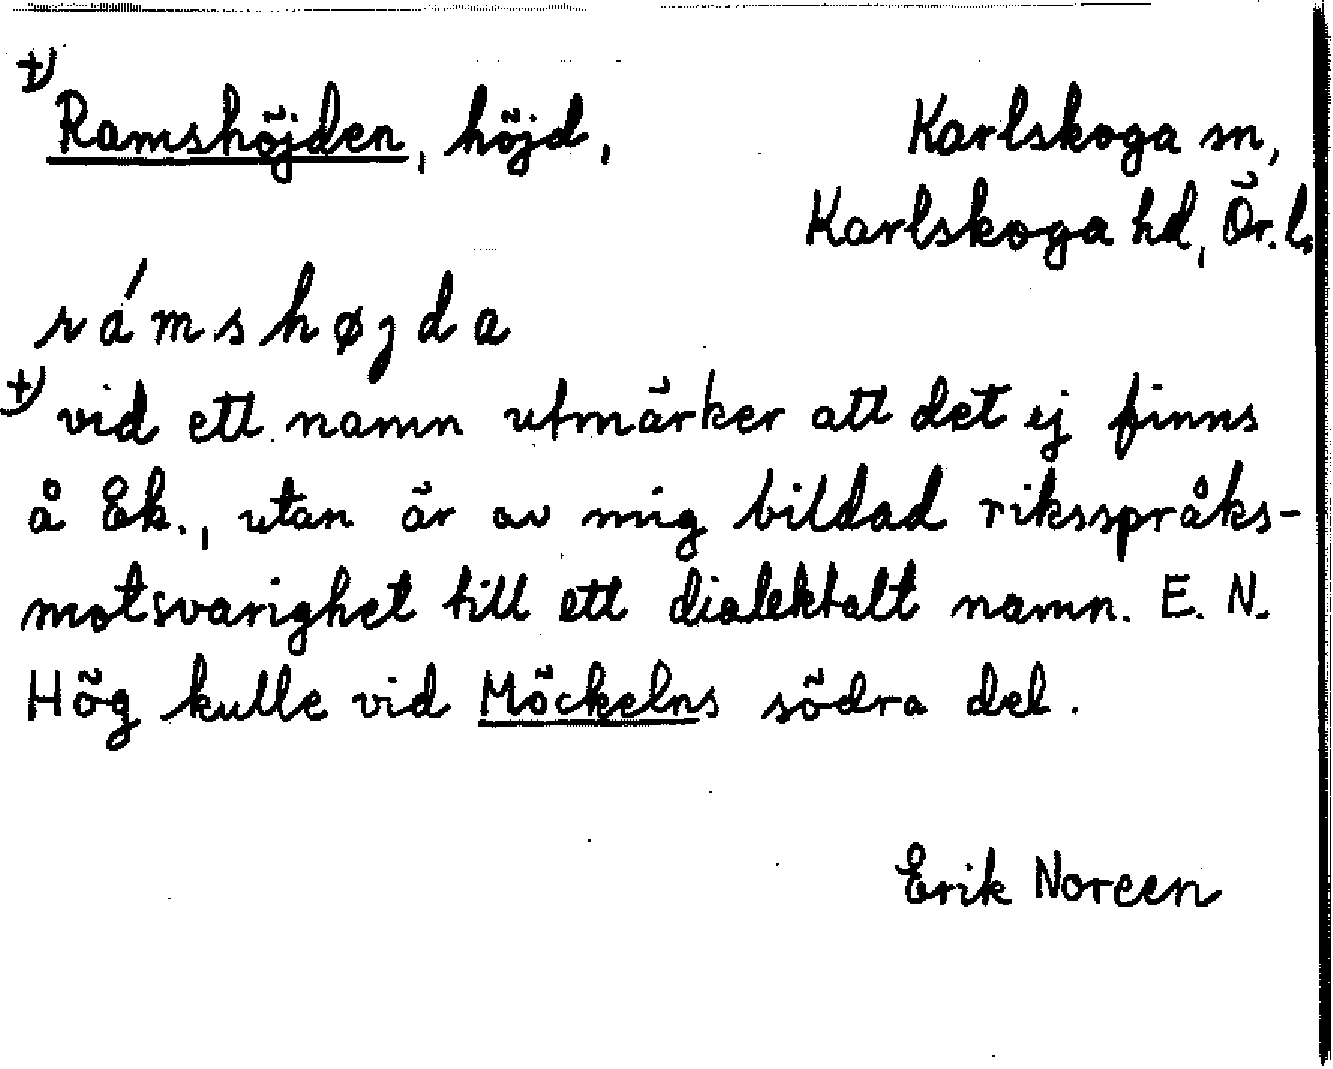 +) Ramshöjden, höjd, Karlskoga sn,
Karlskoga hd, Ör. l.
rámshøjda
+) vid ett namn utmärker att det ej finns
å Ek., utan är av mig bildad riksspråks-
motsvarighet till ett dialektalt namn. E. N.
Hög kulle vid Möckelns södra del.
Erik Noreen